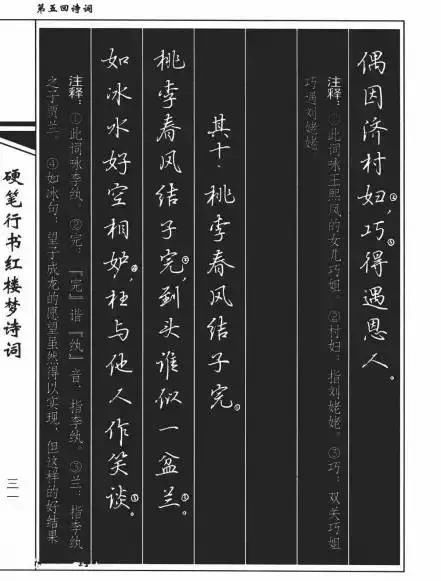 第五回诗词
偶因济村妇②，巧③得遇恩人。
注释：①此词咏王熙凤的女儿巧姐。②村妇：指刘姥姥。③巧：双关巧姐
巧遇刘姥姥
其十·桃李春风结子完①
桃李春风结子完②，到头谁似一盆兰③。
如冰水好空相妒④，枉与他人作笑谈⑤。
注释：①此词咏李纨。②完：『完』谐『纨』音，指李纨。③兰：指李纨
之子贾兰。④如冰句：望子成龙的愿望虽然得以实现，但这样的好结果
硬笔行书红楼梦诗词
三一